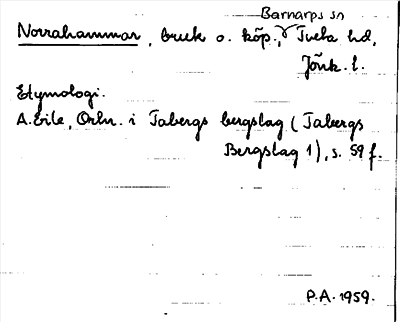 Barnarps sn
Norrahammar, bruk o. köp., Tveta hd,
Jönk. l.
Etymologi.
A. Eile, Ortn. i Tabergs bergslag (Tabergs
Bergslag 1), s. 59 f.
P.A. 1959.